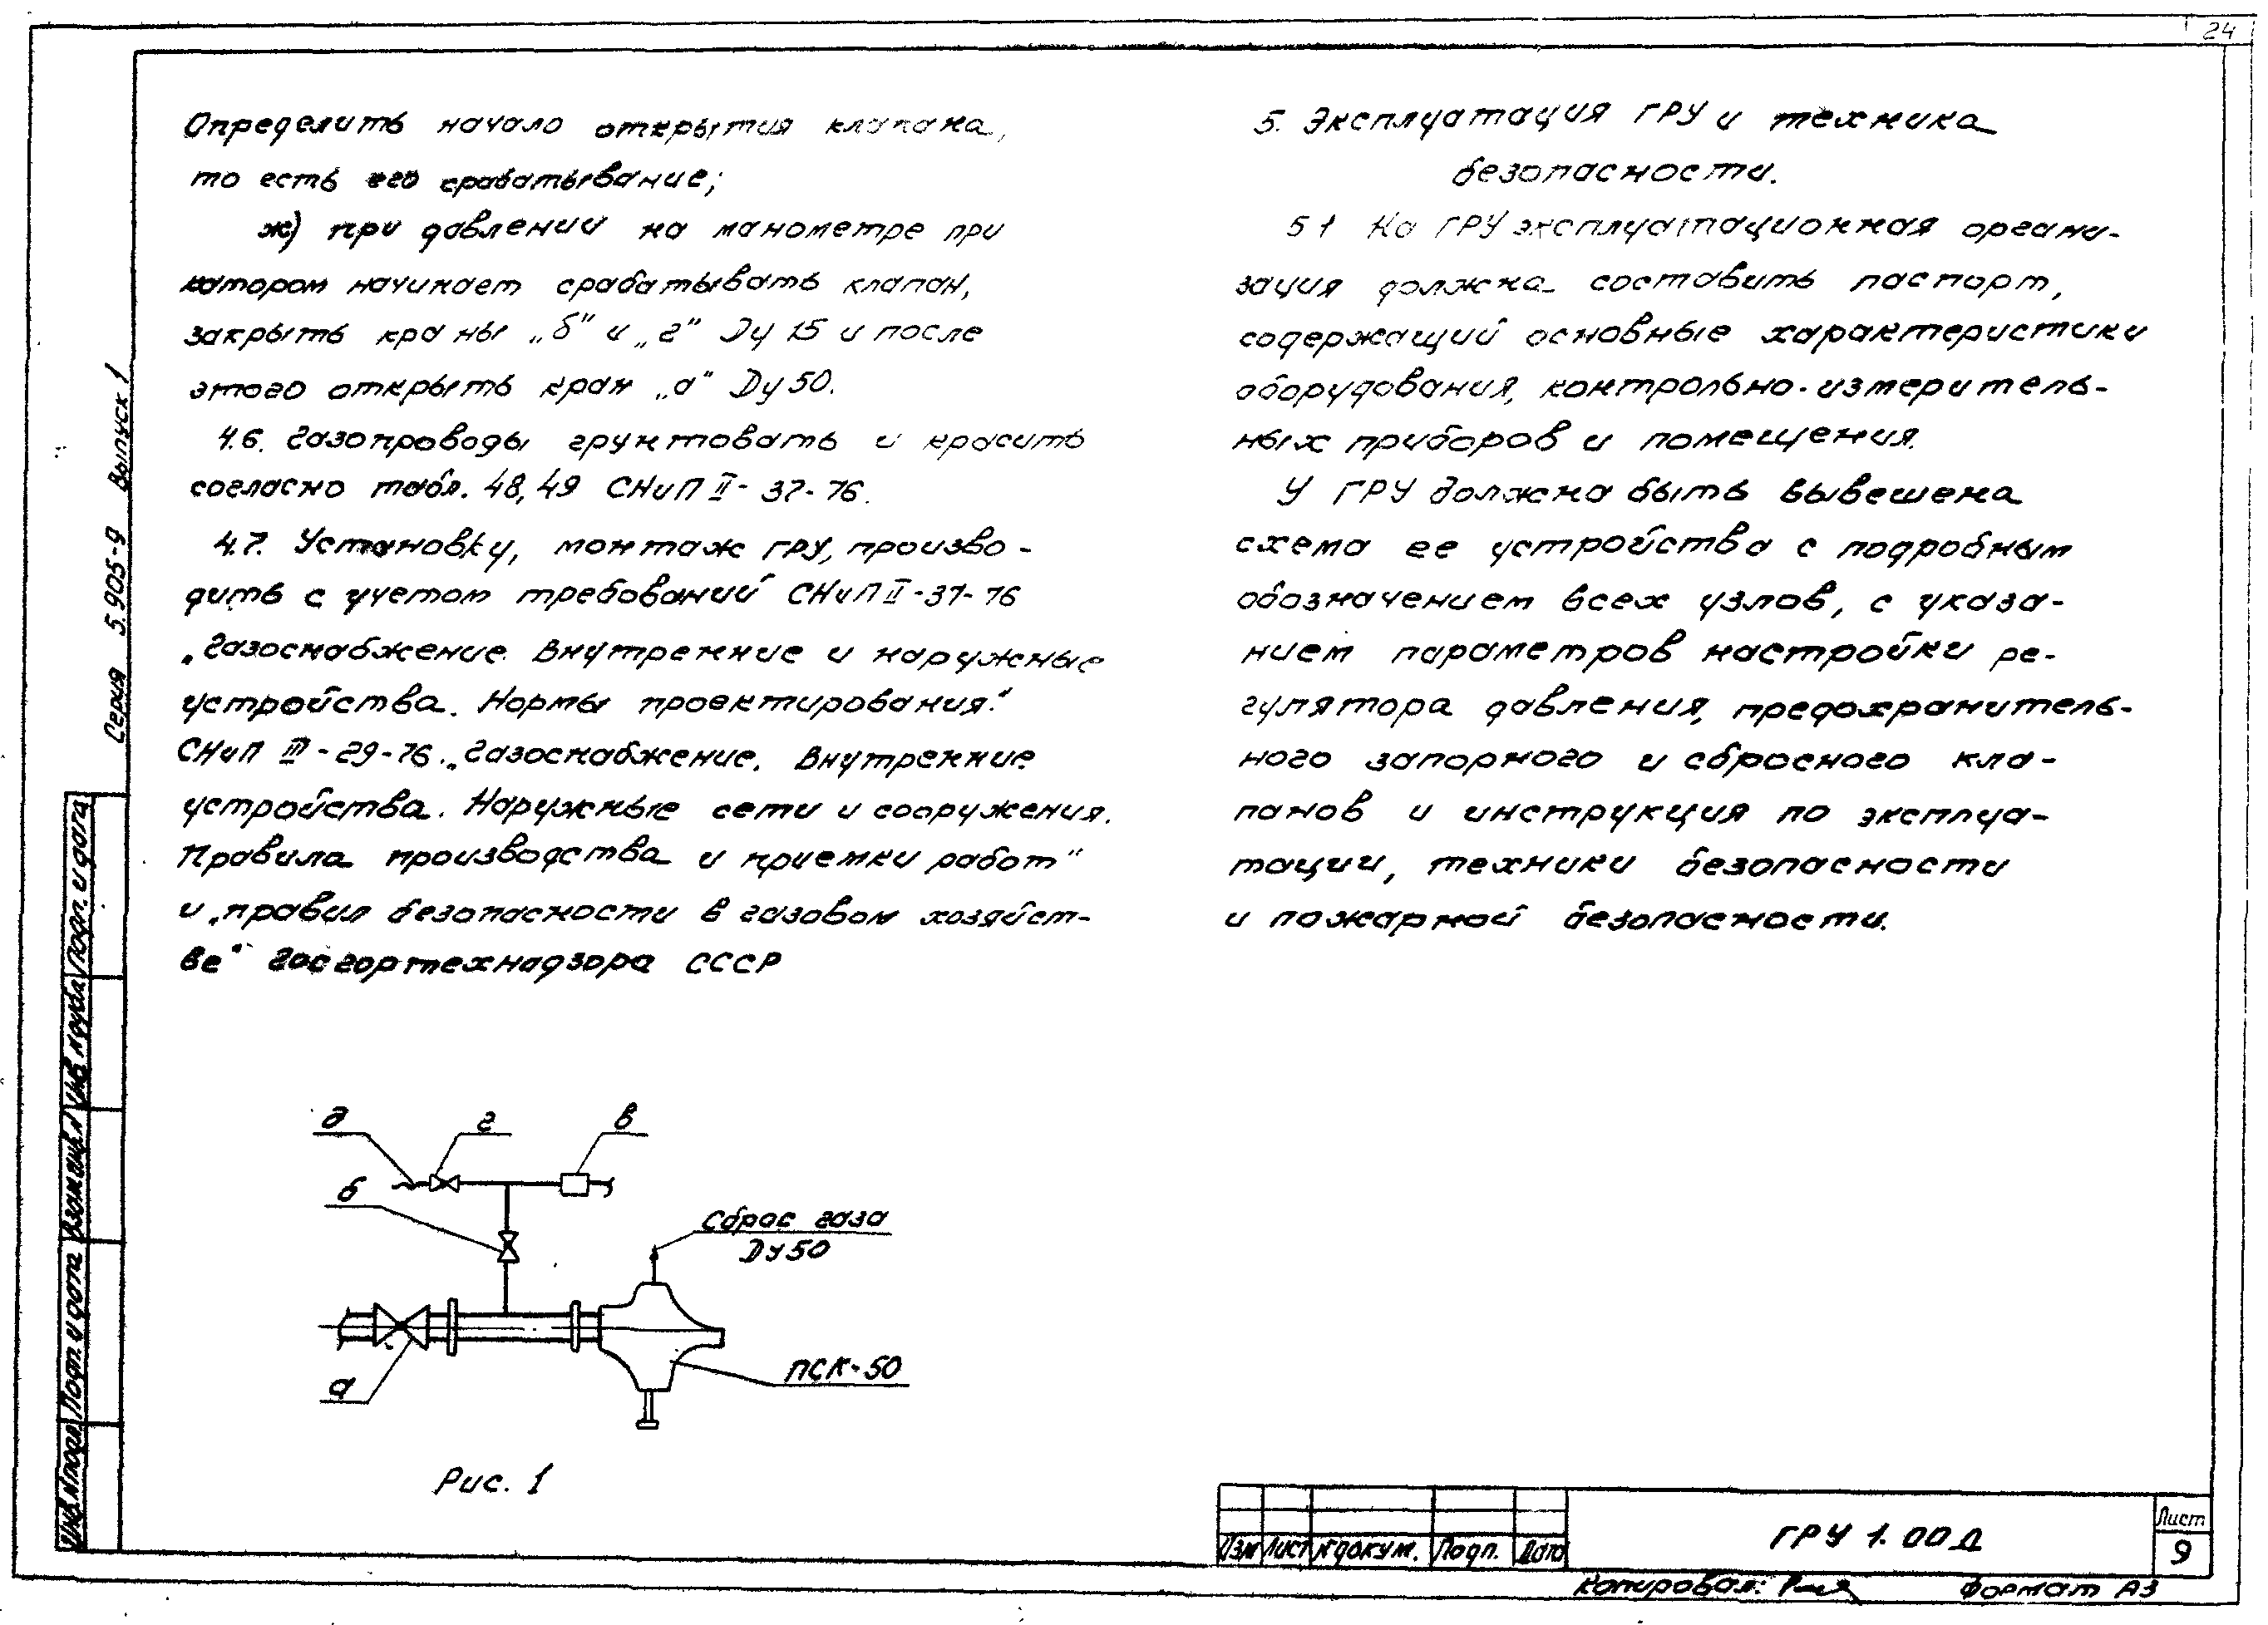 24
Определить начало открытия клапана,
то есть его срабатывание;
ж) при давлении на манометре при
котором начинает срабатывать клапан,
закрыть краны „б" и „г" Ду 15 и после
этого открыть кран „а" Ду 50.
4.6. Газопроводы грунтовать и красить
согласно табл. 48, 49 СНиП II-37-76.
4.7. Установку, монтаж ГРУ, произво-
дить с учетом требований СНиП II-37-76
„Газоснабжение. Внутренние и наружные
устройства. Нормы проектирования."
СНиП III-29-76. „Газоснабжение. Внутренние
устройства. Наружные сети и сооружения.
Правила производства и приемки работ"
и „правил безопасности в газовом хозяйст-
ве" Госгортехнадзора СССР
д
г
в
б
Сброс газа
Ду 50
а
ПСК-50
Рис. 1
5. Эксплуатация ГРУ и техника
безопасности.
5 1 На ГРУ эксплуатационная органи-
зация должна составить паспорт,
содержащий основные характеристики
оборудования, контрольно-измеритель-
ных приборов и помещения.
У ГРУ должна быть вывешена
схема ее устройства с подробным
обозначением всех узлов, с указа-
нием параметров настройки ре-
гулятора давления, предохранитель-
ного запорного и сбросного кла-
панов и инструкция по эксплуа-
тации, техники безопасности
и пожарной безопасности.
Серия 5.905-9 Выпуск 1
Инв.№подл. Подп. и дата Взам.инв.№ Инв.№дубл. Подп. и дата
Изм Лист №докум. Подп. Дата
ГРУ 1.00 Д
Лист
9
Копировал:
Формат А3